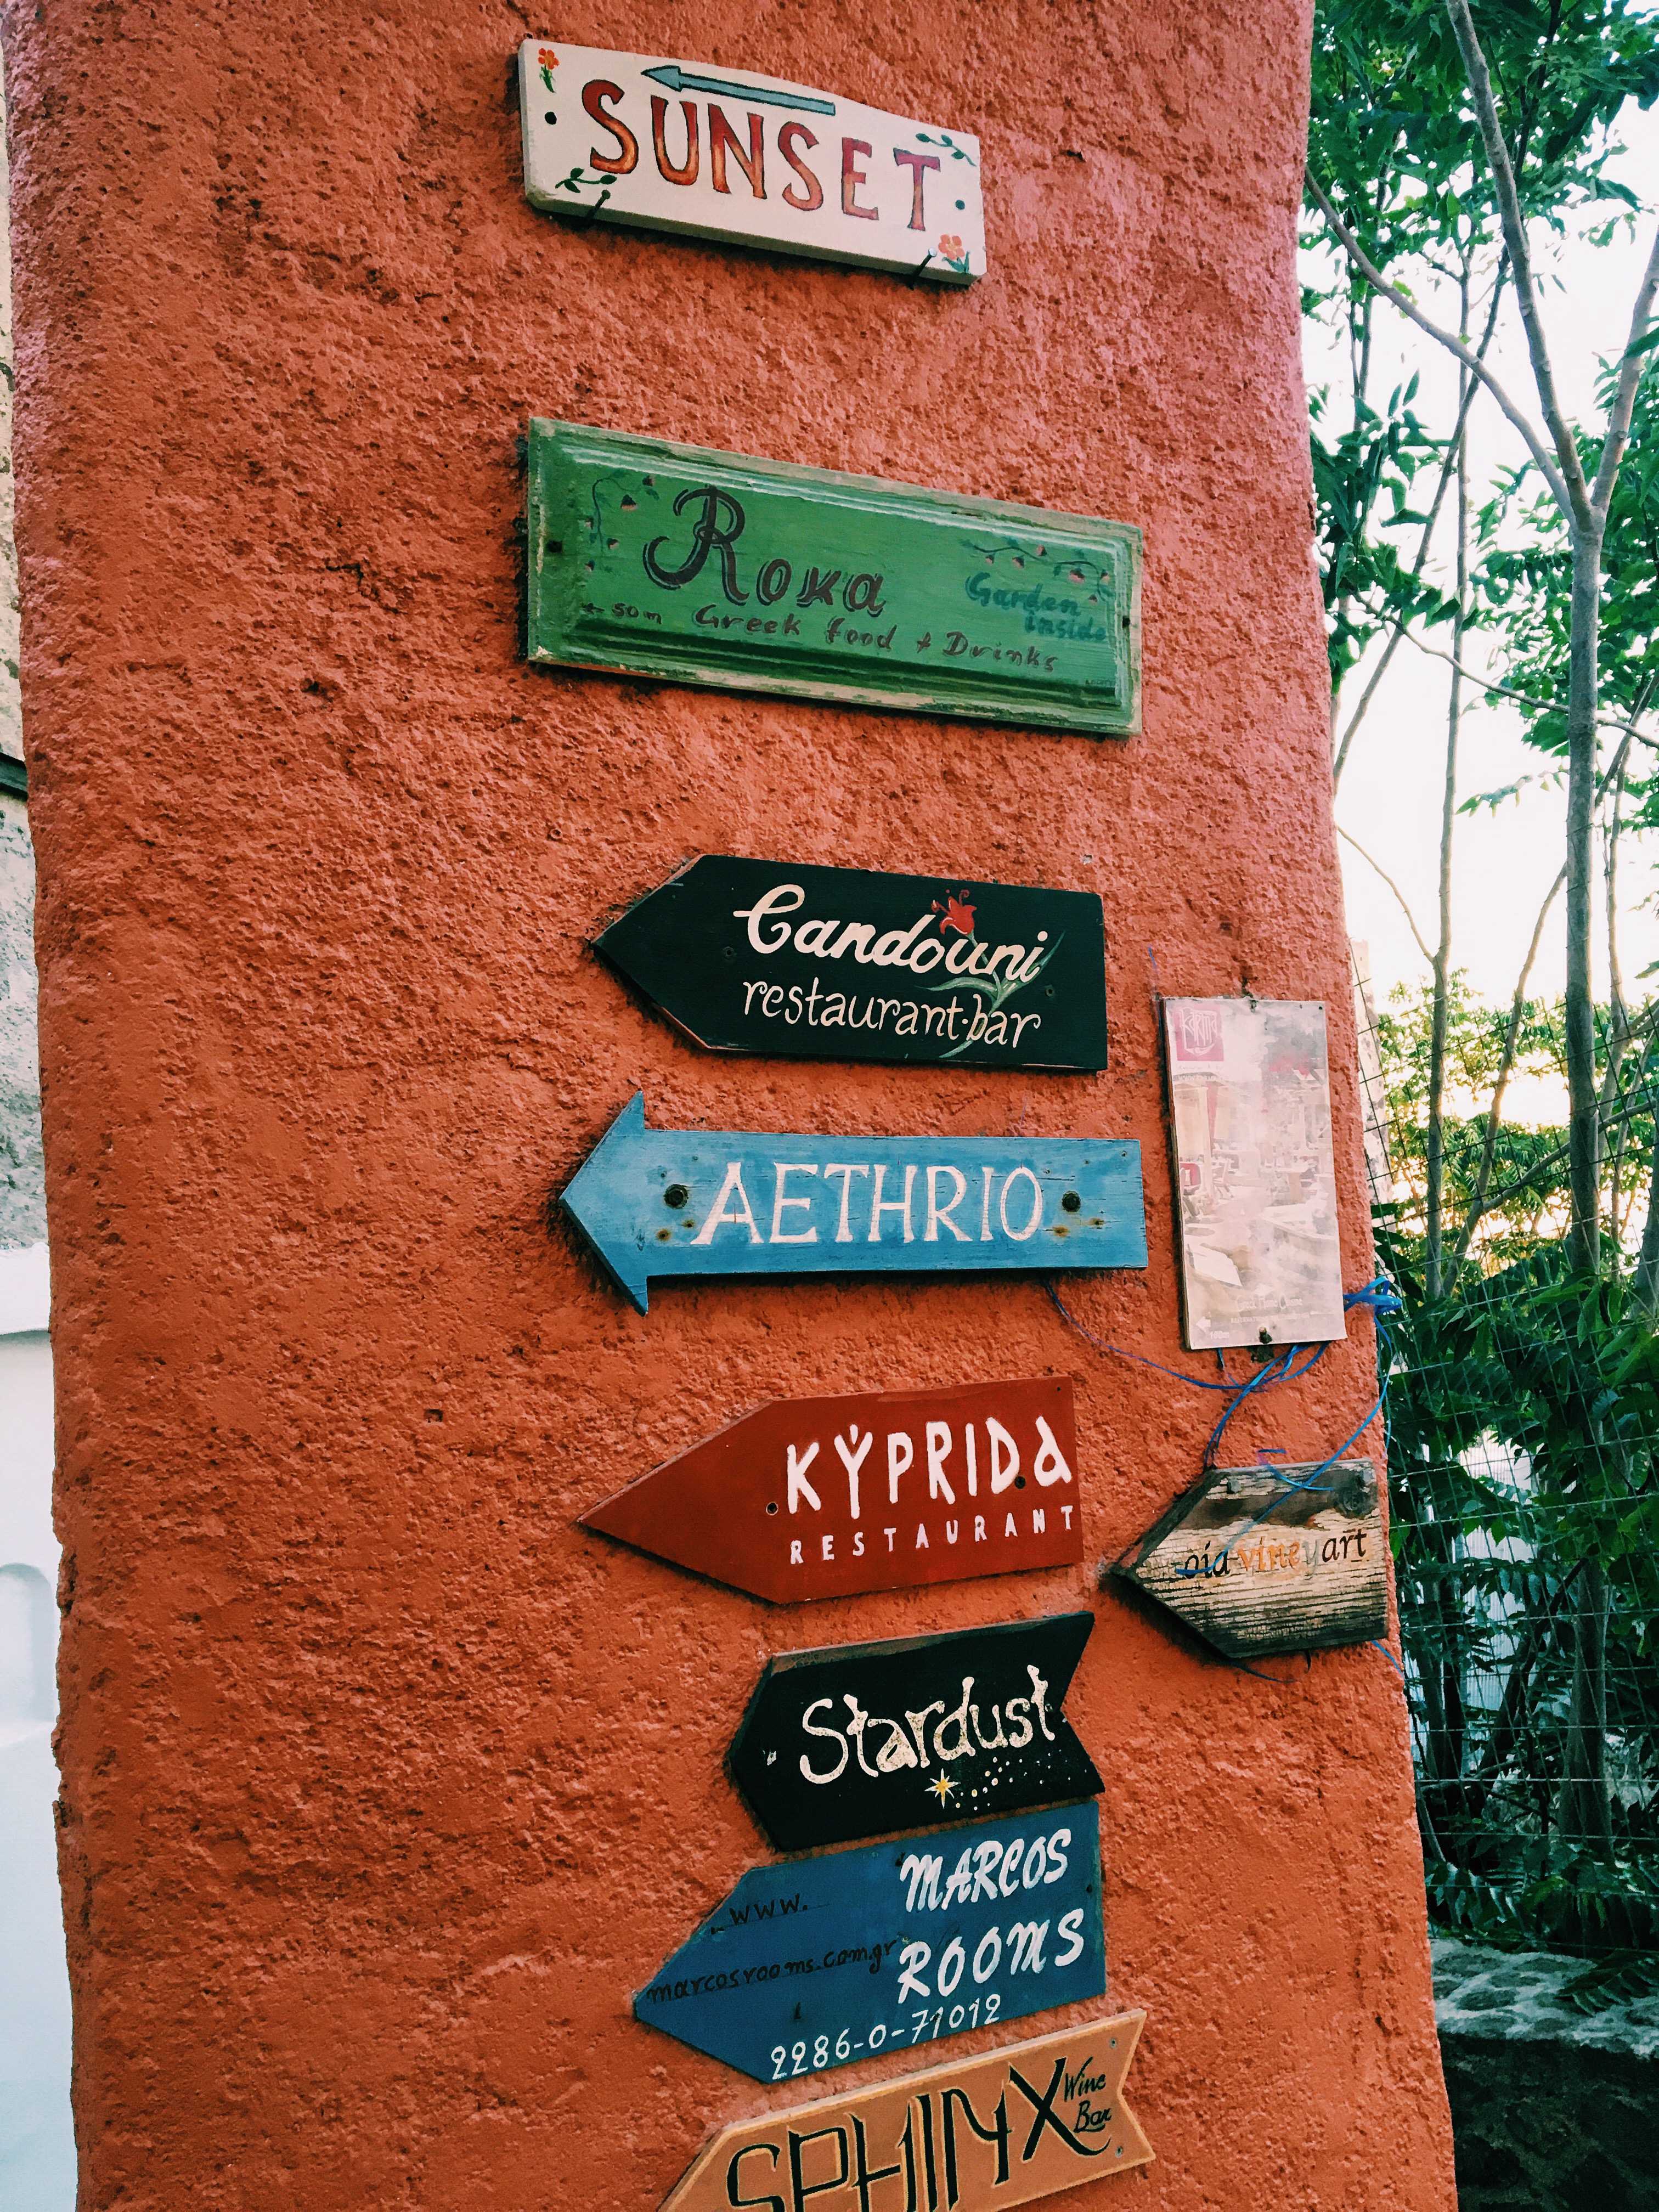 SUNSET
Roka
Garden
inside
← 50m Greek food + Drinks
Candouni
restaurant·bar
AETHRIO
KYPRIDa
RESTAURANT
oia vineyart
Stardust
MARCOS
ROOMS
www.
marcosrooms.com.gr
2286-0-71012
SPHINX
Wine
Bar